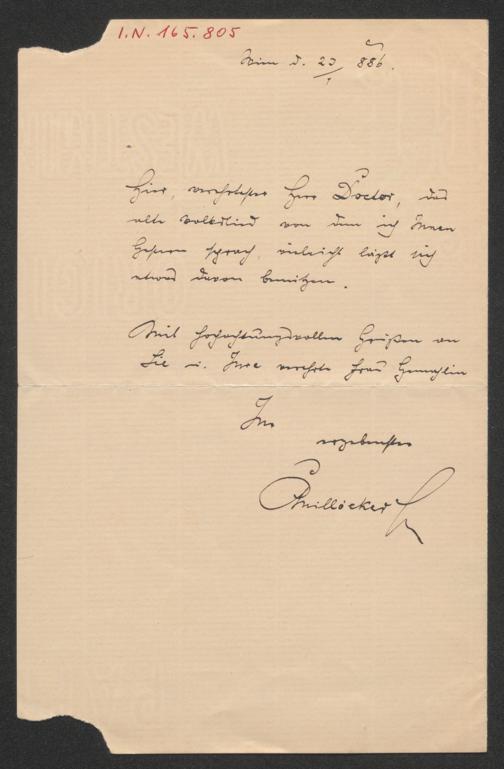 I.N. 165.805
Wien d. 23/1 886.
Hier, verehrtester Herr Doctor, das
alte Volkslied von dem ich Ihnen
gestern sprach, vieleicht läßt sich
etwas davon benützen.
Mit hochachtungsvollen Grüßen an
Sie u. Ihre verehrte Frau Gemahlin
Ihr
ergebenster
CMillöcker